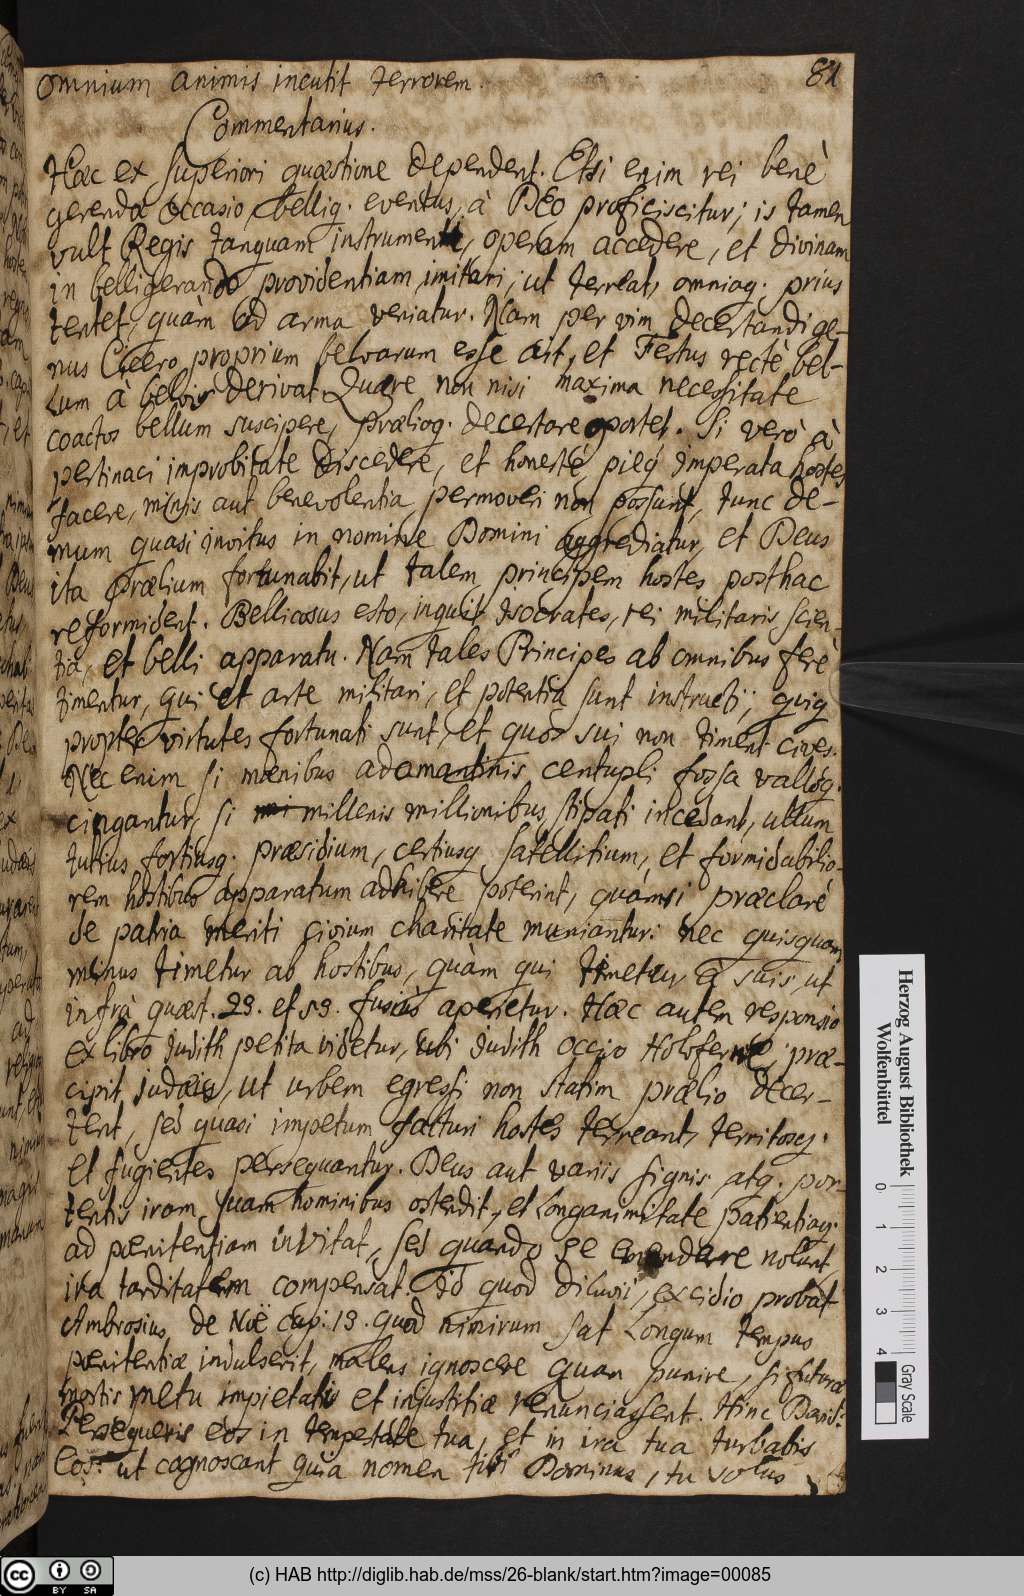 81
omnium animis incutit terrorem.
Commentarius.
Hæc ex superiori quæstione dependent. Etsi enim rei benè
gerendæ occasio, belliq. eventus, à DEo proficiscitur; is tamen
vult Regis tanquam instrumenti, operam accedere, et divinam
in belligerando providentiam imitari, ut terreat, omniaq. prius
tentet, quàm ad arma veniatur. Nam per vim decertandi ge-
nus Cicero proprium belvarum esse ait, et Festus rectè bel-
lum à belvis derivat. Quare non nisi maxima necessitate
coactos bellum suscipere, prælioq. decertare oportet. Si verò à
pertinaci improbitate discedere, et honestè pieq imperata hostes
facere, minis aut benevolentia permoveri non possunt, tunc de-
mum quasi invitus in nomine Domini aggrediatur, et Deus
ita prælium fortunabit, ut talem principem hostes posthac
reformident. Bellicosus esto, inquit Isocrates, rei militaris scien-
tia, et belli apparatu. Nam tales Principes ab omnibus ferè
timentur, qui et arte militari, et potentia sunt instructi; quiq
propter virtutes fortunati sunt, et quos sui non timent cives.
Nec enim si mœnibus adamantinis, centupli fossa valloq.
cingantur, si millenis millionibus stipati incedant, ullum
tutius fortiusq. præsidium, certiusq satellitium, et formidabilio-
rem hostibus apparatum adhibere poterint, quàm si præclarè
de patria meriti civium charitate muniantur: nec quisquam
minus timetur ab hostibus, quàm qui timetur à suis, ut
infrà quæst. 29. et 59. fusiùs aperietur. Hæc autem responsio
ex libro Judith petita videtur, ubi Judith occiso Holoferne, præ-
cipit Judæis, ut urbem egressi non statim prælio decer-
tent, sed quasi impetum facturi hostes terreant, territosq.
et fugientes persequantur. Deus aut variis signis atq. por-
tentis iram suam hominibus ostendit, et longanimitate patientiaq.
ad pœnitentiam invitat, sed quando se emendare nolunt
ira tarditatem compensat. Id quod diluvii excidio probat
Ambrosius, de Noë cap. 13. quod nimirum sat longum tempus
pœnitentiæ indulserit, malens ignoscere quam punire, si futuræ
mortis metu impietatis et injustitiæ renunciassent. Hinc David:
Persequeris eos in tempestate tua, et in ira tua turbabis
eos: ut cognoscant quia nomen tibi Dominus, tu solus
Herzog August Bibliothek
Wolfenbüttel
0 1 2 3 4
Gray Scale
cc BY SA
(c) HAB http://diglib.hab.de/mss/26-blank/start.htm?image=00085